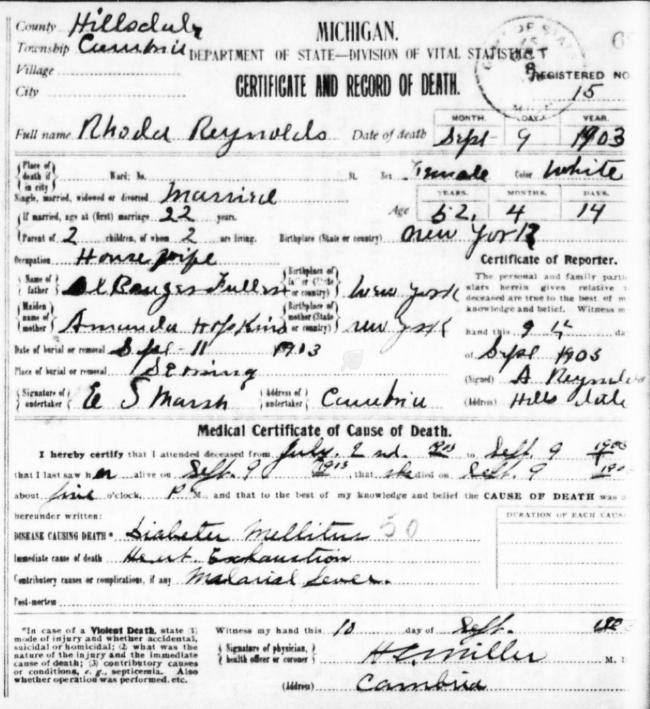 County Hillsdale
Township Cambria
Village
City
MICHIGAN.
DEPARTMENT OF STATE—DIVISION OF VITAL STATISTICS
CERTIFICATE AND RECORD OF DEATH.
OF STATE
OCT
8
REGISTERED NO
15
Full name Rhoda Reynolds Date of death
MONTH. DAY. YEAR.
Sept 9 1903
Place of death if in city Ward; No. St. Sex Female Color White
Single, married, widowed or divorced Married
If married, age at (first) marriage 22 years.
Age
YEARS. MONTHS. DAYS.
52, 4 14
Parent of 2 children, of whom 2 are living. Birthplace (State or country) New York
Occupation House wife
Name of father Fuller Birthplace of father (State or country) New York
Maiden name of mother Amanda Hopkins Birthplace of mother (State or country) New York
Date of burial or removal Sept 11 1903
Place of burial or removal
Signature of undertaker E S Marsh Address of undertaker Cambria
Certificate of Reporter.
The personal and family parti
culars herein given relative t
deceased are true to the best of m
knowledge and belief. Witness m
hand this 9 da
of Sept 1903
(Signed) A Reynolds
(Address) Hillsdale
Medical Certificate of Cause of Death.
I hereby certify that I attended deceased from July 2nd. 1903 to Sept. 9 1903
that I last saw her alive on Sept. 9 1903, that she died on Sept. 9 190
about five o'clock, P M., and that to the best of my knowledge and belief the CAUSE OF DEATH was a
hereunder written:
DURATION OF EACH CAUS
DISEASE CAUSING DEATH* Diabetes Mellitus 50
Immediate cause of death Heart Exhaustion
Contributory causes or complications, if any Malarial Fever.
Post-mortem
*In case of a Violent Death, state (1)
mode of injury and whether accidental,
suicidal or homicidal; (2) what was the
nature of the injury and the immediate
cause of death; (3) contributory causes
or conditions, e. g., septicemia. Also
whether operation was performed, etc.
Witness my hand this 10 day of Sept. 190
Signature of physician, health officer or coroner H S Miller M. D
(Address) Cambria